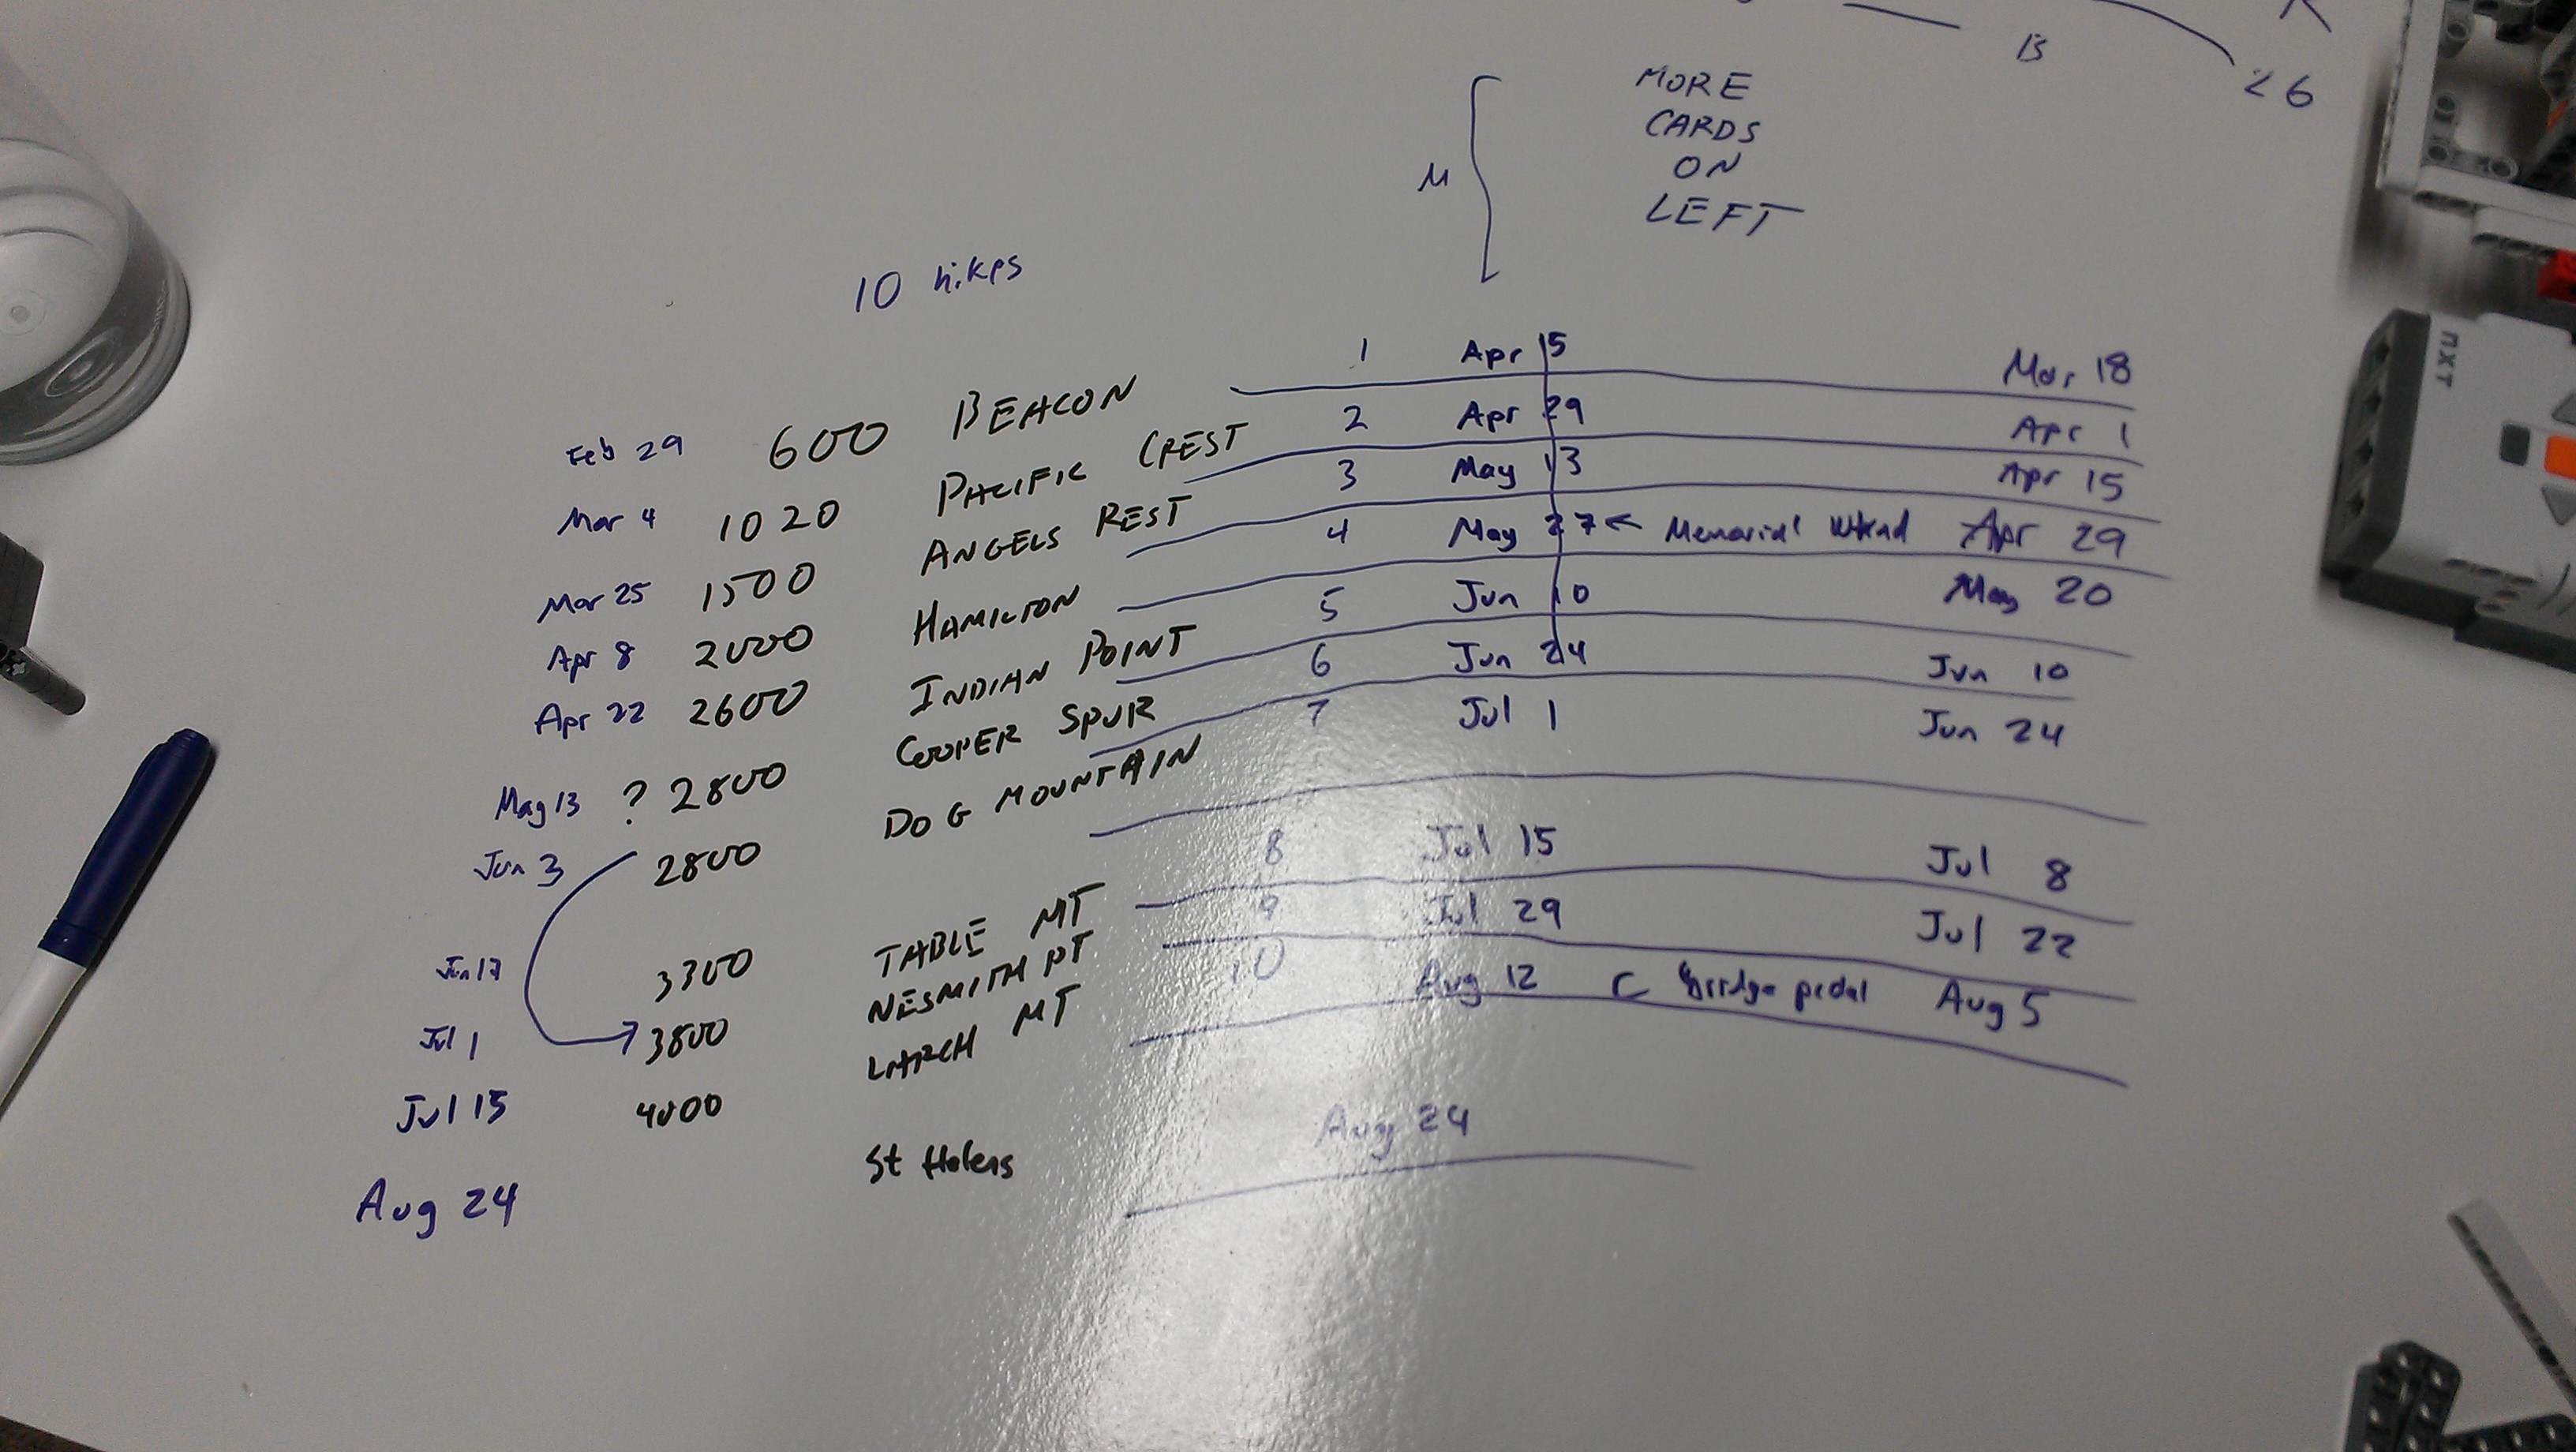 B
26
MORE
CARDS
ON
LEFT
M
10 hikes
Feb 29 600 BEACON 1 Apr 15 Mar 18
Mar 4 1020 PACIFIC CREST 2 Apr 29 Apr 1
Mar 25 1500 ANGELS REST 3 May 13 Apr 15
Apr 8 2000 HAMILTON 4 May 27 ← Memorial Wkend Apr 29
Apr 22 2600 INDIAN POINT 5 Jun 10 May 20
May 13 ? 2800 COOPER SPUR 6 Jun 24 Jun 10
Jun 3 2800 DOG MOUNTAIN 7 Jul 1 Jun 24
Jun 17 3300 TABLE MT 8 Jul 15 Jul 8
Jul 1 3800 NESMITH PT 9 Jul 29 Jul 22
Jul 15 4000 LARCH MT 10 Aug 12 bridge pedal Aug 5
Aug 24 St Helens Aug 24
NXT